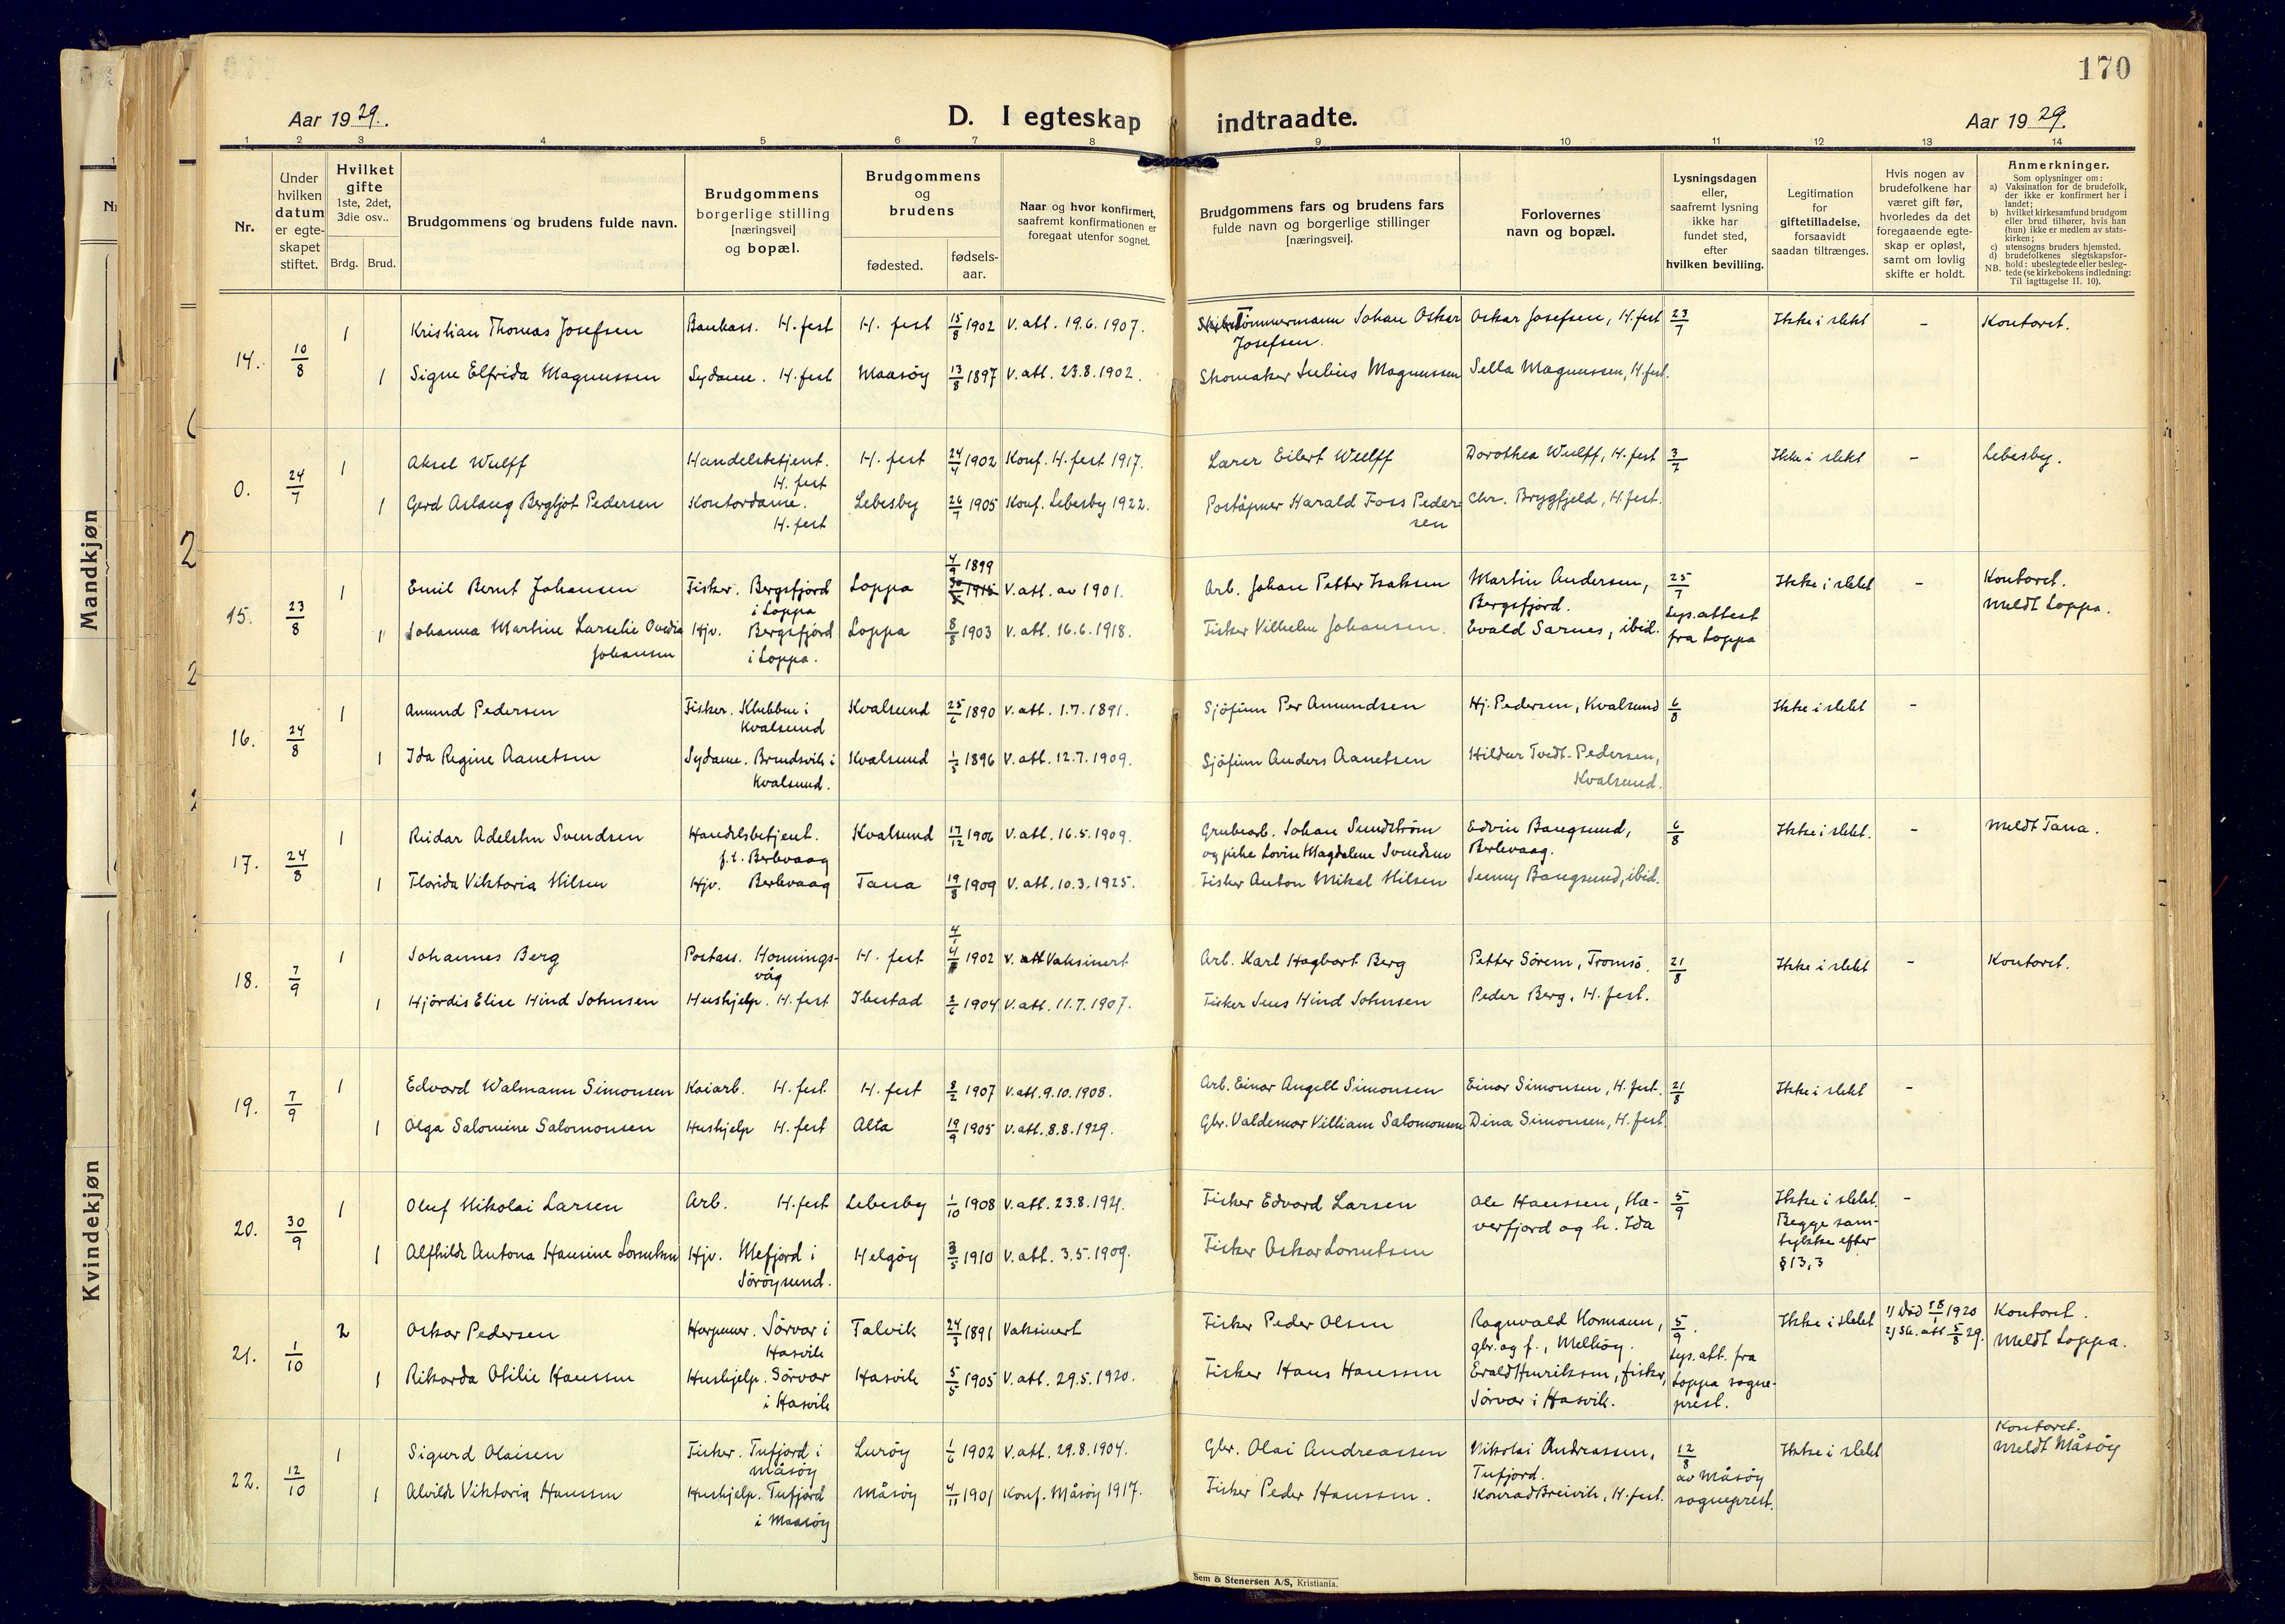 170
Aar 1929.
D. I egteskap indtraadte.
Aar 1929.
1 2 3 4 5 6 7 8 9 10 11 12 13 14
Nr.
Under hvilken datum er egteskapet stiftet.
Hvilket gifte 1ste, 2det, 3die osv..
Brdg. Brud.
Brudgommens og brudens fulde navn.
Brudgommens borgerlige stilling [næringsvei] og bopæl.
Brudgommens og brudens
fødested.
fødselsaar.
Naar og hvor konfirmert, saafremt konfirmationen er foregaat utenfor sognet.
Brudgommens fars og brudens fars fulde navn og borgerlige stillinger [næringsvei].
Forlovernes navn og bopæl.
Lysningsdagen eller, saafremt lysning ikke har fundet sted, efter hvilken bevilling.
Legitimation for giftetilladelse, forsaavidt saadan tiltrænges.
Hvis nogen av brudefolkene har været gift før, hvorledes da det foregaaende egteskap er opløst, samt om lovlig skifte er holdt.
Anmerkninger.
Som oplysninger om:
a) Vaksination for de brudefolk, der ikke er konfirmert her i landet;
b) hvilket kirkesamfund brudgom eller brud tilhører, hvis han (hun) ikke er medlem av statskirken;
c) utensogns bruders hjemsted.
d) brudefolkenes slegtskapsforhold: ubeslegtede eller beslegtede (se kirkebokens indledning: Til iagttagelse II. 10).
NB.
Mandkjøn
Kvindekjøn
14. 10/8
1 Kristian Thomas Josefsen Bankass. H.fest H. fest 15/8 1902 V. att. 19.6.1907. Tømmermann Johan Oskar Josefsen. Oskar Josefsen, H.fest 23/7 Ikke i slekt - Kontoret.
1 Signe Elfrida Magnussen Sydame. H.fest Maasöy 13/8 1897 V. att. 23.8.1902. Skomaker Julius Magnussen Sella Magnussen, H.fest.
0. 24/7
1 Aksel Wulff Handelsbetjent. H. fest H. fest 24/7 1902 Konf. H.fest 1917. Lærer Eilert Wulff Dorothea Wulff, H.fest 3/7 Ikke i slekt - Lebesby.
1 Gerd Aslaug Bergljot Pedersen Kontordame. H. fest Lebesby 26/7 1905 Konf. Lebesby 1922. Poståpner Harald Foss Pedersen Chr. Brygfjeld, H.fest.
15. 23/8
1 Emil Bernt Johansen Fisker. Bergsfjord i Loppa Loppa 4/9 1899 V. att. av 1901. Arb. Johan Petter Isaksen Martin Andersen, Bergsfjord. 25/7 Lys.attest fra Loppa Ikke i slekt - Kontoret. Meldt Loppa.
1 Johanna Martine Larselie Ovedia Johansen Hjv. Bergsfjord i Loppa. Loppa 8/8 1903 V. att. 16.6.1918. Fisker Vilhelm Johansen. Evald Sarnes, ibid.
16. 24/8
1 Amund Pedersen Fisker. Klubben i Kvalsund Kvalsund 25/6 1890 V. att. 1.7.1891. Sjöfinn Per Amundsen Hj. Pedersen, Kvalsund 6/8 Ikke i slekt -
1 Ida Regine Aanetsen Sydame. Brudsvik i Kvalsund. Kvalsund 1/5 1896 V. att. 12.7.1909. Sjöfinn Anders Aanetsen Hildur Tvedt-Pedersen, Kvalsund.
17. 24/8
1 Reidar Adelsten Svendsen Handelsbetjent. f.t. Berlevaag Kvalsund 17/12 1906 V. att. 16.5.1909. Grubearb. Johan Sundström og pike Lovise Magdalene Svendsen Edvin Bangsund, Berlevaag. 6/8 Ikke i slekt. - Meldt Tana.
1 Florida Viktoria Nilsen Hjv. Berlevaag Tana 19/8 1909 V. att. 10.3.1925. Fisker Anton Mikal Nilsen Jenny Bangsund, ibid.
18. 7/9
1 Johannes Berg Postass. Honningsvåg H. fest 4/1 1902 V. att Vaksinert Arb. Karl Hagbart Berg Petter Sörem, Tromsö. 21/8 Ikke i slekt - Kontoret.
1 Hjördis Elise Hind Johnsen Hushjelp. H. fest Ibestad 2/6 1904 V. att. 11.7.1907. Fisker Jens Hind Johnsen Peder Berg, H. fest.
19. 7/9
1 Edvard Walmann Simonsen Kaiarb. H. fest. H. fest 8/2 1907 V. att. 9.10.1908. Arb. Einar Angell Simonsen Einar Simonsen, H.fest. 21/8 Ikke i slekt -
1 Olga Salomine Salomonsen Hushjelp H. fest Alta 19/9 1905 V. att. 8.8.1929. Gbr. Valdemar Villiam Salomonsen Dina Simonsen, H.fest.
20. 30/9
1 Oluf Nikolai Larsen Arb. H.fest Lebesby 1/10 1908 V. att. 23.8.1921. Fisker Edvard Larsen Ole Hanssen, Hæverfjord og h. Ida 5/9 Ikke i slekt. Begge samtykke efter § 13,3 -
1 Alfhild Antona Hansine Lorntsen Hjv. Mefjord i Söröysund. Helgöy 3/5 1910 V. att. 3.5.1909. Fisker Oskar Lorntsen
21. 1/10
2 Oskar Pedersen Harpuner. Sörvær i Hasvik Talvik 24/3 1891 Vaksinert Fisker Peder Olsen Ragnvald Hormann, gbr. og f., Melköy. 5/9. Lys. att. fra Loppa sogneprest. Ikke i slekt 1) Död 18/1 1920 2) Sk. att 5/8 29. Kontoret. Meldt Loppa.
1 Rikarda Otilie Hanssen Hushjelp. Sörvær i Hasvik Hasvik 5/5 1905 V. att. 29.5.1920. Fisker Hans Hanssen Evald Henriksen, fisker, Sörvær i Hasvik.
22. 12/10
1 Sigurd Olaisen Fisker. Tufjord i Måsöy Luröy 1/6 1902 V. att. 29.8.1904. Gbr. Olai Andreassen Nikolai Andreassen, Tufjord. 12/8 av Måsöy sogneprest. Ikke i slekt Kontoret. Meldt Måsöy
1 Alvilde Viktoria Hanssen Hushjelp. Tufjord i Maasöy Måsöy 4/11 1901 Konf. Måsöy 1917. Fisker Peder Hanssen. Konrad Breivik, H.fest.
Sem & Stenersen A/S, Kristiania.